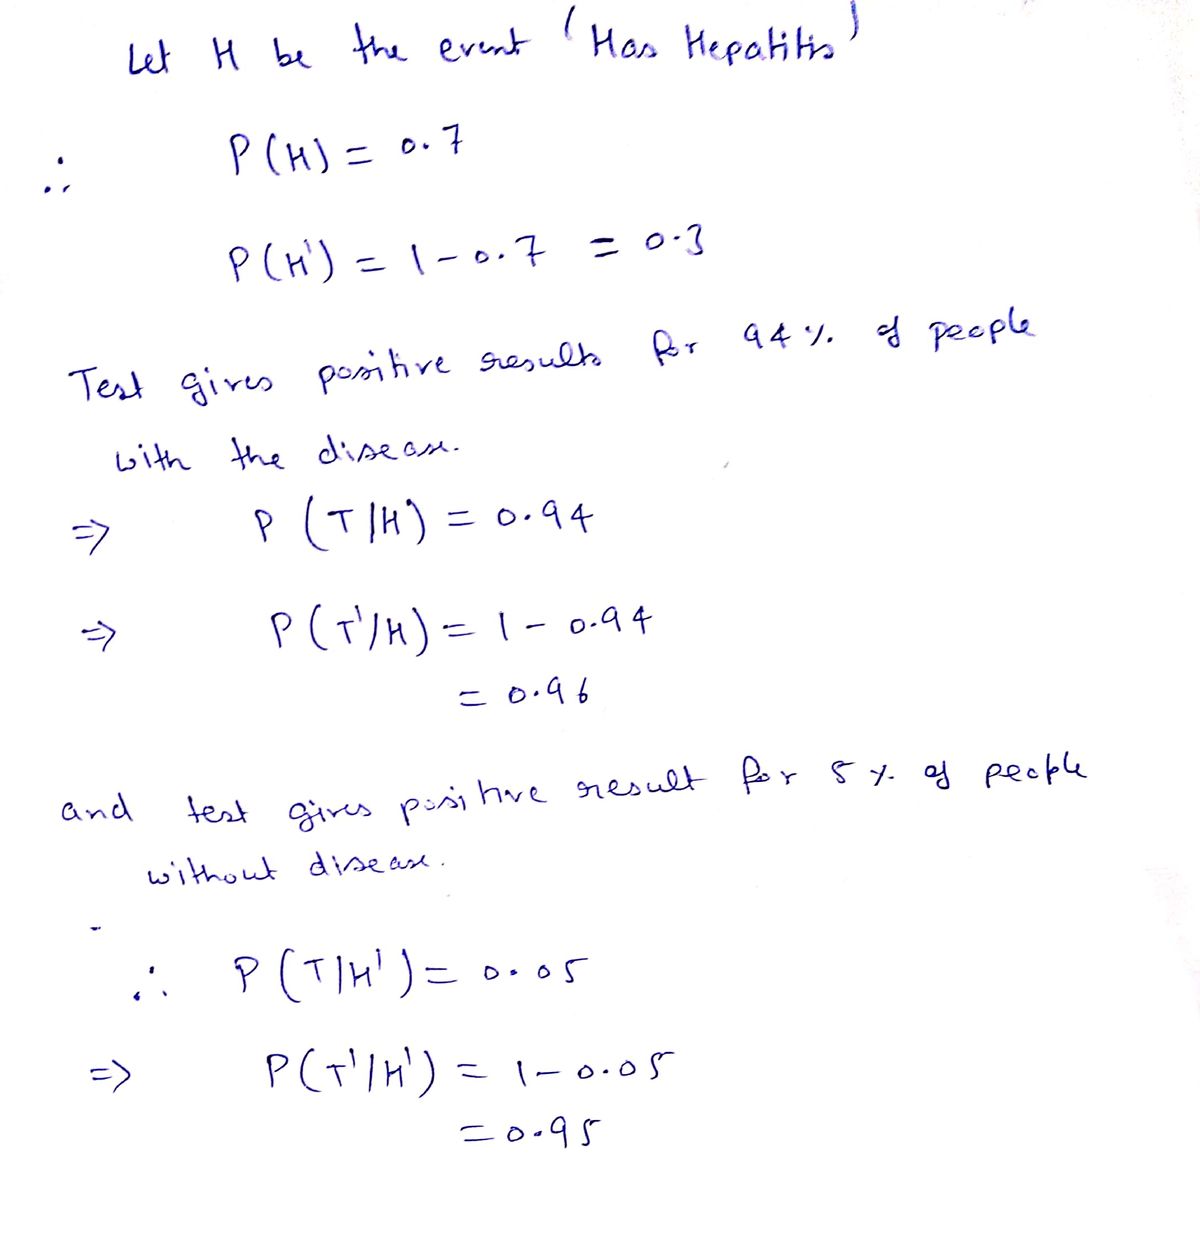 Let H be the event 'Has Hepatitis'
∴ P(H) = 0.7
P(H') = 1-0.7 = 0.3
Test gives positive results for 94% of people
with the disease.
⇒ P (T/H) = 0.94
⇒ P(T'/H) = 1 - 0.94
= 0.96
and test gives positive result for 5% of people
without disease.
∴ P(T/H') = 0.05
⇒ P(T'/H') = 1-0.05
= 0.95